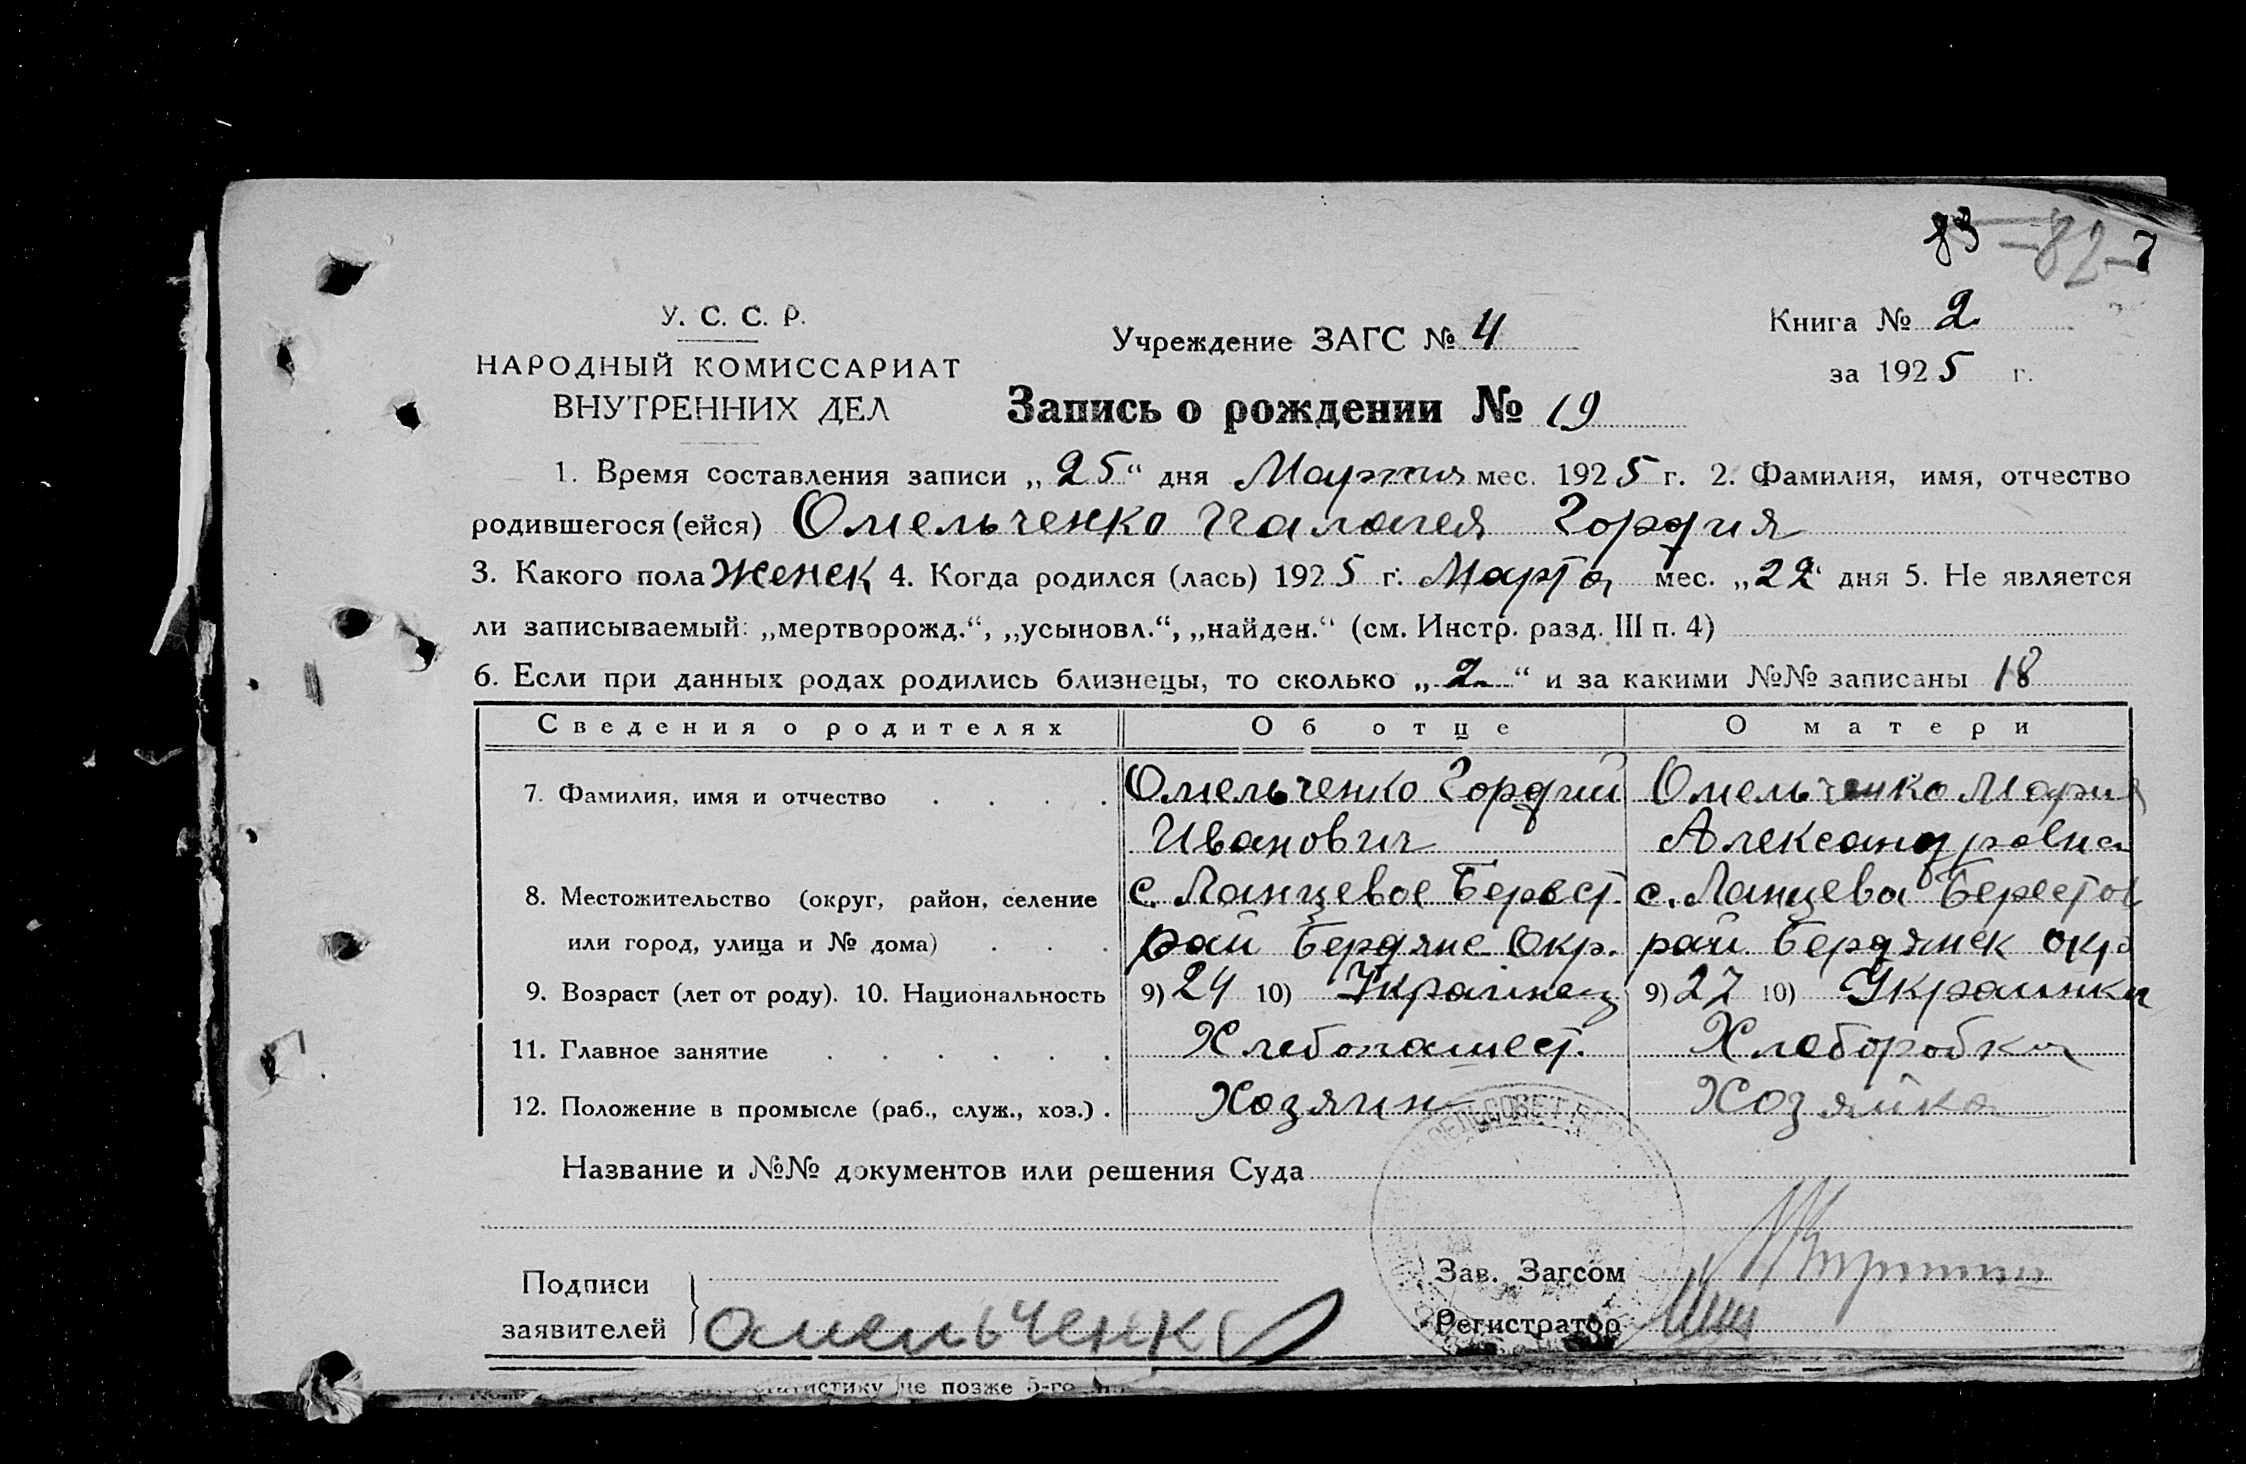 83 -82- 7
У. С. С. Р.
НАРОДНЫЙ КОМИССАРИАТ
ВНУТРЕННИХ ДЕЛ
Учреждение ЗАГС № 4
Книга № 2
за 1925 г.
Запись о рождении № 19
1. Время составления записи „25“ дня Марта мес. 1925 г. 2. Фамилия, имя, отчество
родившегося (ейся) Омельченко Палагея Гордия
3. Какого пола Женск 4. Когда родился (лась) 1925 г. Марта мес. „22“ дня 5. Не является
ли записываемый: „мертворожд.“, „усыновл.“, „найден.“ (см. Инстр. разд. III п. 4)
6. Если при данных родах родились близнецы, то сколько „2“ и за какими №№ записаны 18
Сведения о родителях Об отце О матери
7. Фамилия, имя и отчество . . . . Омельченко Гордий Омельченко Мария
Иванович Александровна
8. Местожительство (округ, район, селение с. Ланцевое Берест. с. Ланцева Берестов
или город, улица и № дома) . . . рай Бердянс Окр. рай. Бердянск окр
9. Возраст (лет от роду). 10. Национальность 9) 24 10) Украинец 9) 27 10) Украинка
11. Главное занятие . . . . . . Хлебопашест. Хлеборобка
12. Положение в промысле (раб., служ., хоз.) . Хозяин Хозяйка
Название и №№ документов или решения Суда
СЕЛЬСОВЕТ
Подписи
заявителей
Омельченко
Зав. Загсом
Регистратор
статистику не позже 5-го